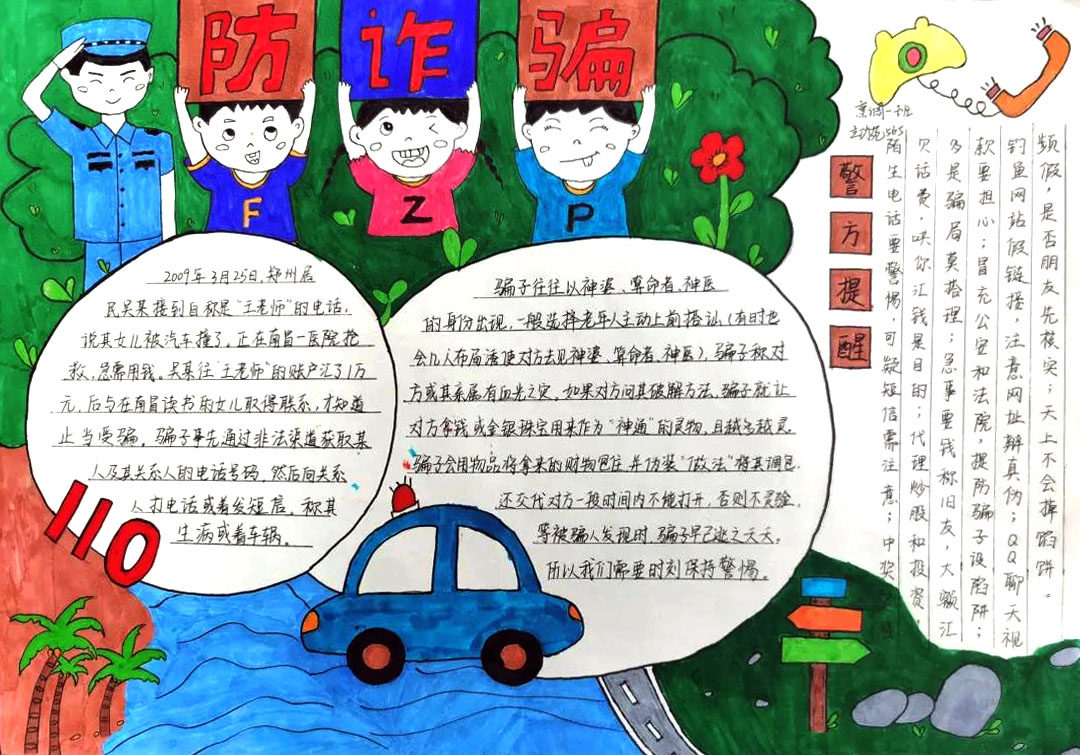 防诈骗
F
Z
P
2009年3月25日,郑州居
民吴某接到自称是“王老师”的电话,
说其女儿被汽车撞了,正在南昌一医院抢
救,急需用钱。吴某往“王老师”的账户汇了1万
元,后与在南昌读书的女儿取得联系,才知道
上当受骗。骗子事先通过非法渠道获取某
人及其关系人的电话号码,然后向关系
人打电话或者发短信,称其
生病或者车祸。
110
骗子往往以神婆、算命者、神医
的身份出现,一般选择老年人主动上前搭讪(有时也
会几人布局诱使对方去见神婆、算命者、神医),骗子称对
方或其亲属有血光之灾,如果对方问其破解方法,骗子就让
对方拿钱或金银珠宝用来作为“神通”的灵物,且越多越灵。
骗子会用物品将拿来的财物包住,并伪装“做法”将其调包,
还交代对方一段时间内不能打开,否则不灵验,
等被骗人发现时,骗子早已逃之夭夭。
所以我们需要时刻保持警惕。
烹调一班
警方提醒
陌生电话要警惕,可疑短信需注意;中奖
贝话费,哄你汇钱是目的;代理炒股和投资,
多是骗局莫搭理;急事要钱称旧友,大额汇
款要担心;冒充公安和法院,提防骗子设陷阱;
钓鱼网站假链接,注意网址辨真伪;QQ聊天视
频假,是否朋友先核实;天上不会掉馅饼。